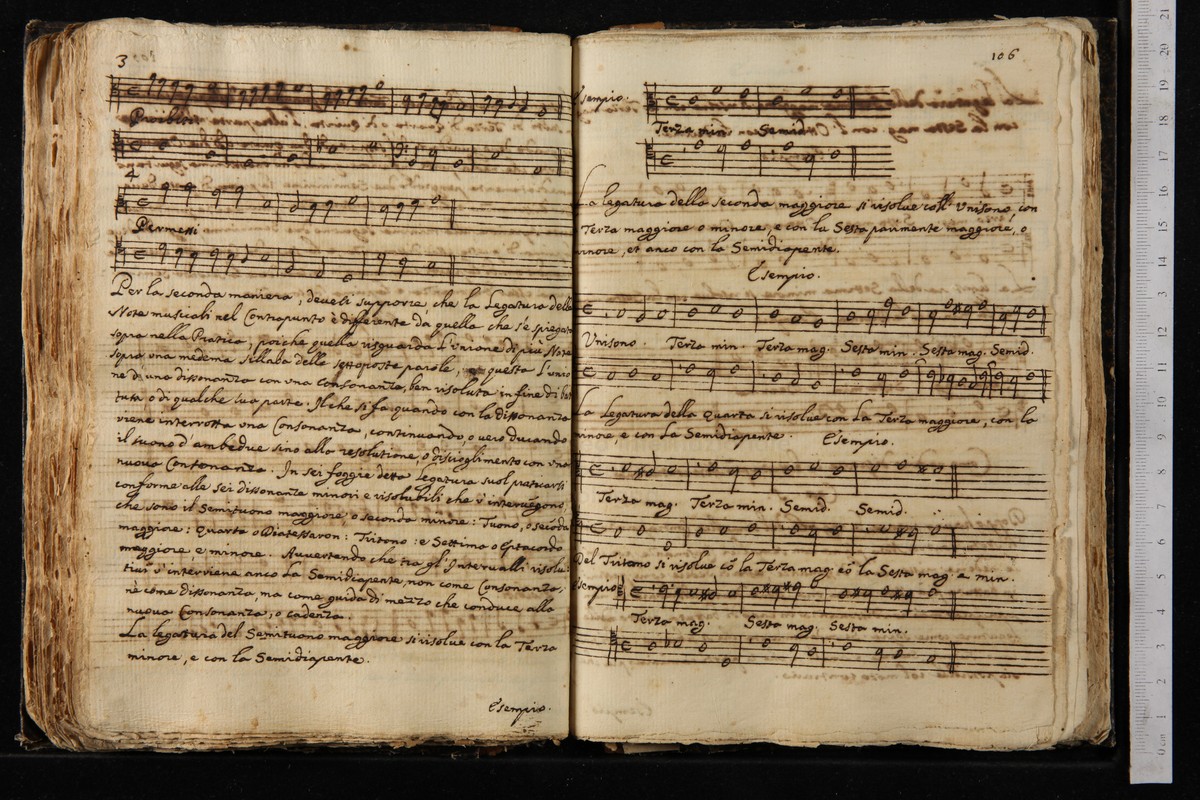 3
Proibiti
4
Permessi
Per la seconda maniera, devesi supporre, che la Legatura delle
Note musicali nel Contrapunto è differente da quella che s'è spiegata
sopra nella Pratica, poiche quella risguarda l'unione di più Note
sopra una medema sillaba delle sottoposte parole, questa l'unio
ne d'una dissonanza con una Consonanza, ben risoluta in fine di bat
tuta o di qualche sua parte. Il che si fa quando con la dissonanza
viene interrotta una Consonanza, continuando, o vero durando
il suono d'ambedue sino alla resolutione, o discioglimento con una
nuova Consonanza. In sei foggie detta Legatura suol praticarsi
conforme alle sei dissonanze minori e risolubili che v'intervengono,
che sono il Semituono maggiore o seconda minore: Tuono, o secõda
maggiore: Quarta o Diatessaron: Tritono: e Settima o Eptacordo
maggiore e minore. Avvertendo che tra gl'Intervalli risolu-
tivi v'interviene anco la Semidiapente, non come Consonanza,
nè come dissonanza, ma come guida di mezzo che conduce alla
nuova Consonanza, o cadenza.
La legatura del Semituono maggiore si risolve con la Terza
minore, e con la Semidiapente.
Esempio.
106
Esempio.
Terza min. Semid.
La legatura della seconda maggiore si risolve coll' Unisono con
Terza maggiore o minore, e con la Sesta parimente maggiore, o
minore, et anco con la Semidiapente.
Esempio.
Unisono. Terza min. Terza mag. Sesta min. Sesta mag. Semid.
La Legatura della Quarta si risolve con la Terza maggiore, con la
minore, e con la Semidiapente. Esempio.
Terza mag. Terza min. Semid. Semid.
Del Tritono si risolve cõ la Terza mag. cõ la Sesta mag. e min.
Esempio
Terza mag. Sesta mag. Sesta min.